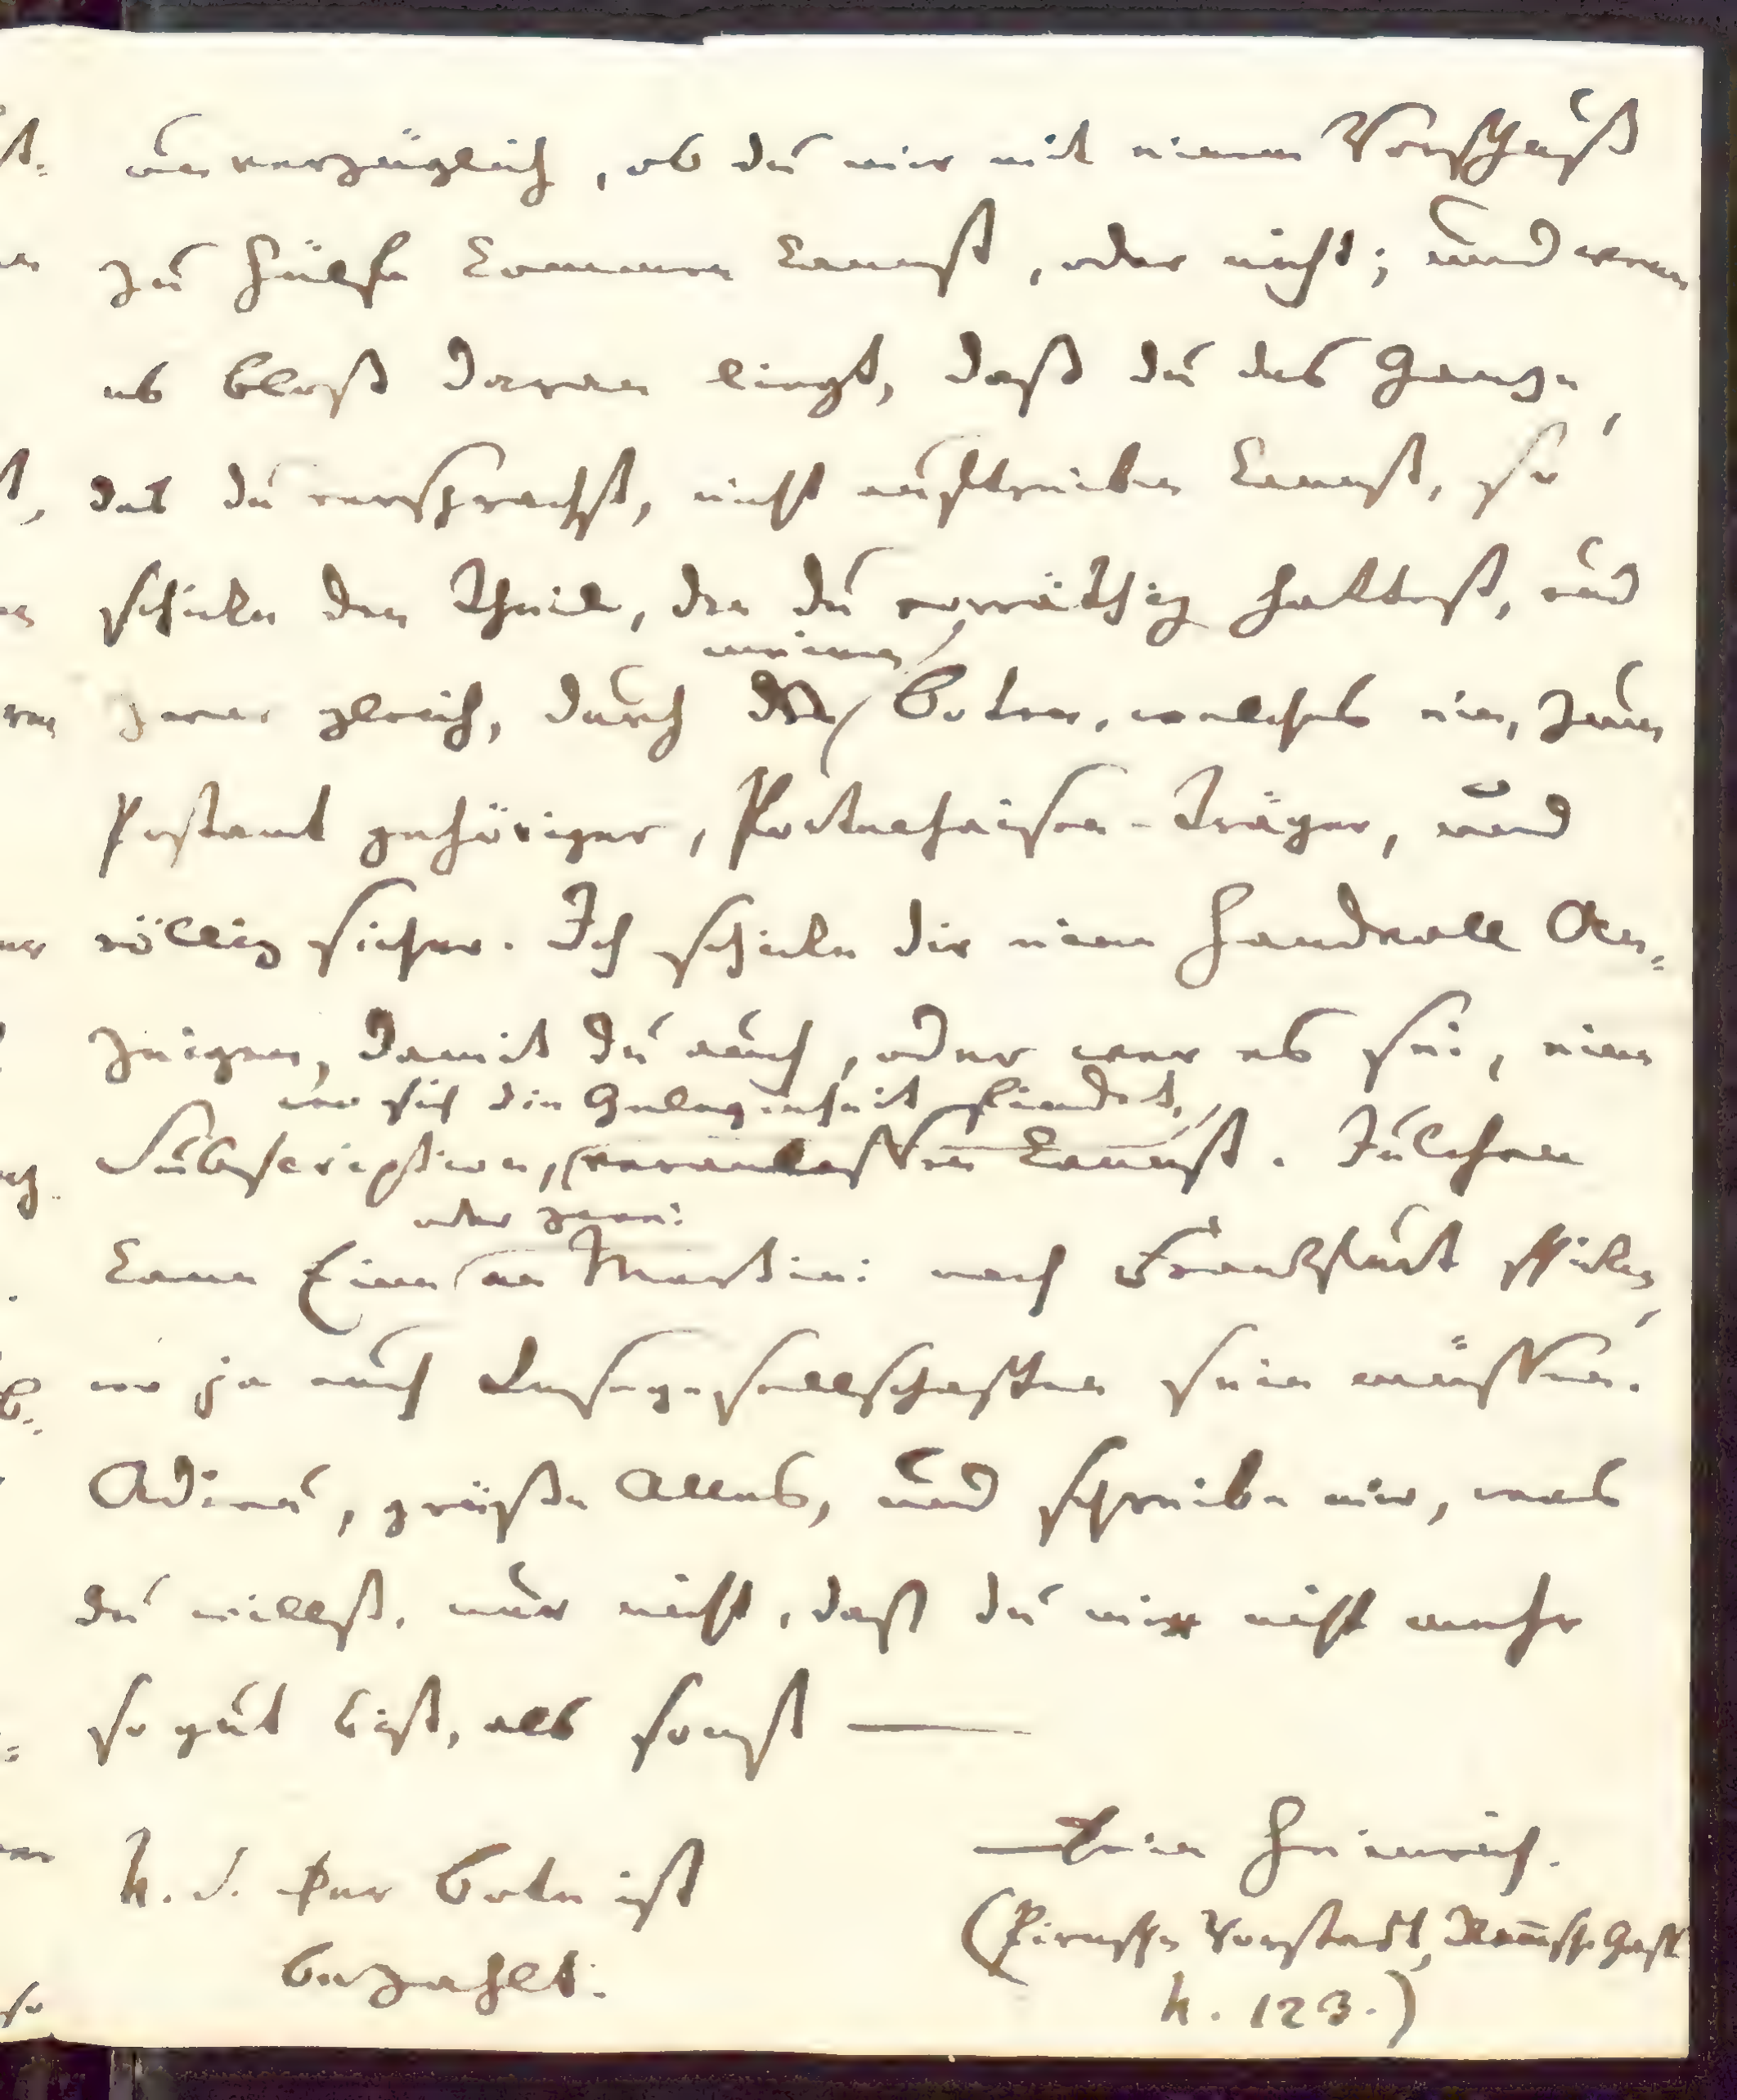 unverzüglich, ob du mir mit einem Vorschuß
zu Hülfe kommen kannst, oder nicht; und wenn
es bloß daran liegt, daß du das Ganze,
das du versprachst, nicht auftreiben kannst, so
schicke den Theil, den du vorräthig hattest, und
meinen
zwar gleich, durch Boten, welches ein, zum
Postamt gehöriger, Portechaisen-Träger, und
völlig sicher. Ich schicke dir eine Handvoll An=
zeigen, damit du auch, oder wer es sei, eine
wo sich die Gelegenheit findet,
Subscription, veranlassen kannst. Julchen
oder zwei
kann Eine an Martini nach Frankfurt schicken,
wo ja auch Lesegesellschaften sein müssen.
Adieu, grüße Alles, und schreibe mir, was
du willst, nur nicht, daß du mir nicht mehr
so gut bist, als sonst —
Dein Heinrich.
N. S. Der Bote ist
bezahlt.
(Pirnsche Vorstadt, Rammsche Gasse
N. 123.)